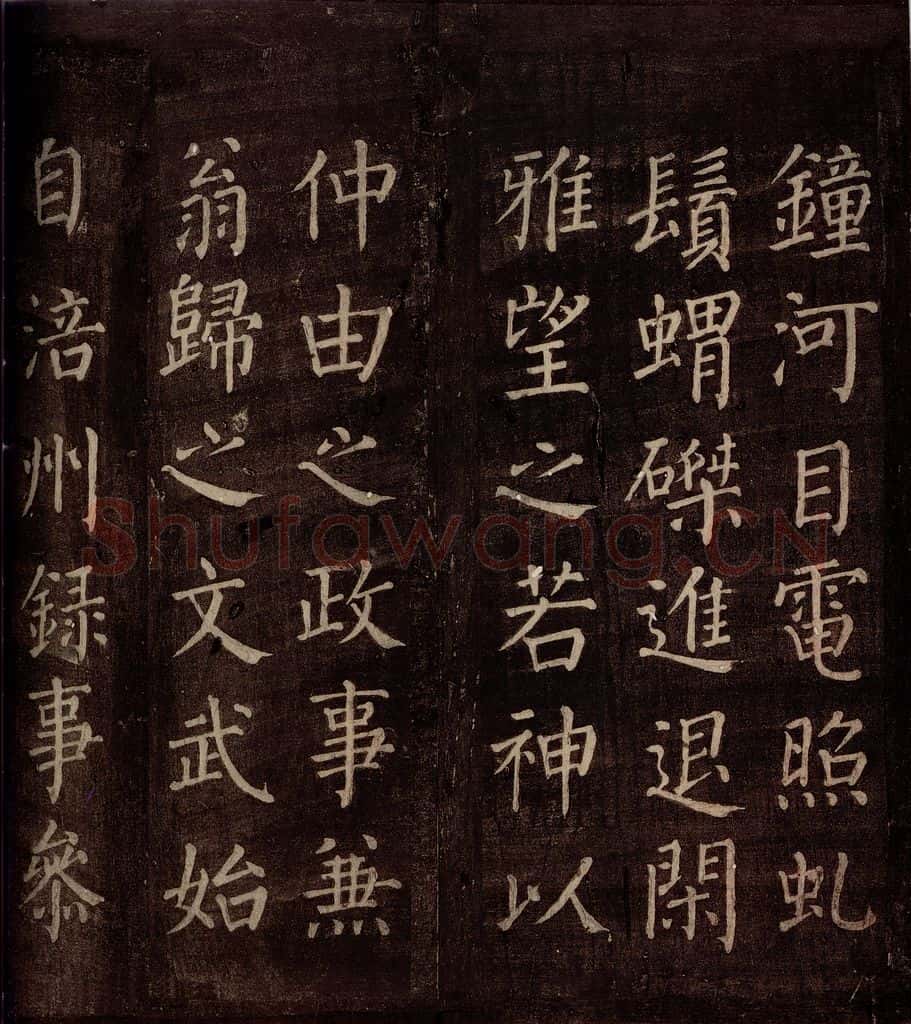 鐘河目電照虬
鬚蝟磔進退閑
雅望之若神以
仲由之政事兼
翁歸之文武始
自涪州録事叅
Shufawang.CN